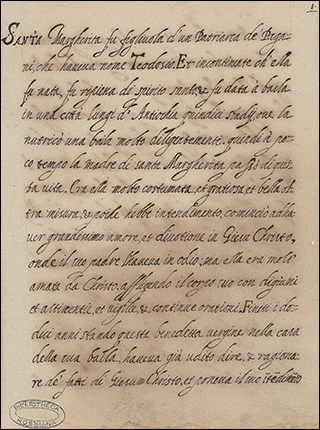 1.
SANTA Margherita fu figliuola d'un Patriarca de' Paga
ni, che haueua nome Teodosio. Et incontinente ch'ella
fu nata, fu ripiena di spirito santo, & fu data à baila
in una città lungi d'Antiochia quindici stadij, one la
nutricò una baila molto diligentemente. quindi à po
co tempo la madre di santa Margherita passò di ques
ta uita. Era ella molto costumata, et gratiosa et bella ol
tra misura, & poi ch'hebbe intendimento, cominciò ad ha
uer grandissimo amore, et diuotione in Giesu Christo,
onde il suo padre l'haueua in odio; ma ella era molto
amata da Christo, affligendo il corpo suo con digiuni
et astinentie, et uigilie, & continue orationi. Finiti i do
dici anni stando questa benedetta uergine nella casa
della sua baila, haueua già udito dire, & ragiona
re de' fatti di Giesu Christo, et poneua il suo